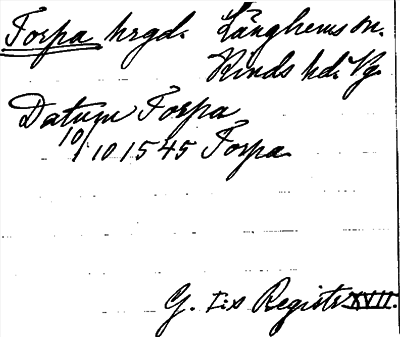 Torpa hrgd. Länghems sn.
Kinds hd. Vg.
Datum Torpa
10/10 1545 Torpa
G. I:s Registr. XVII.